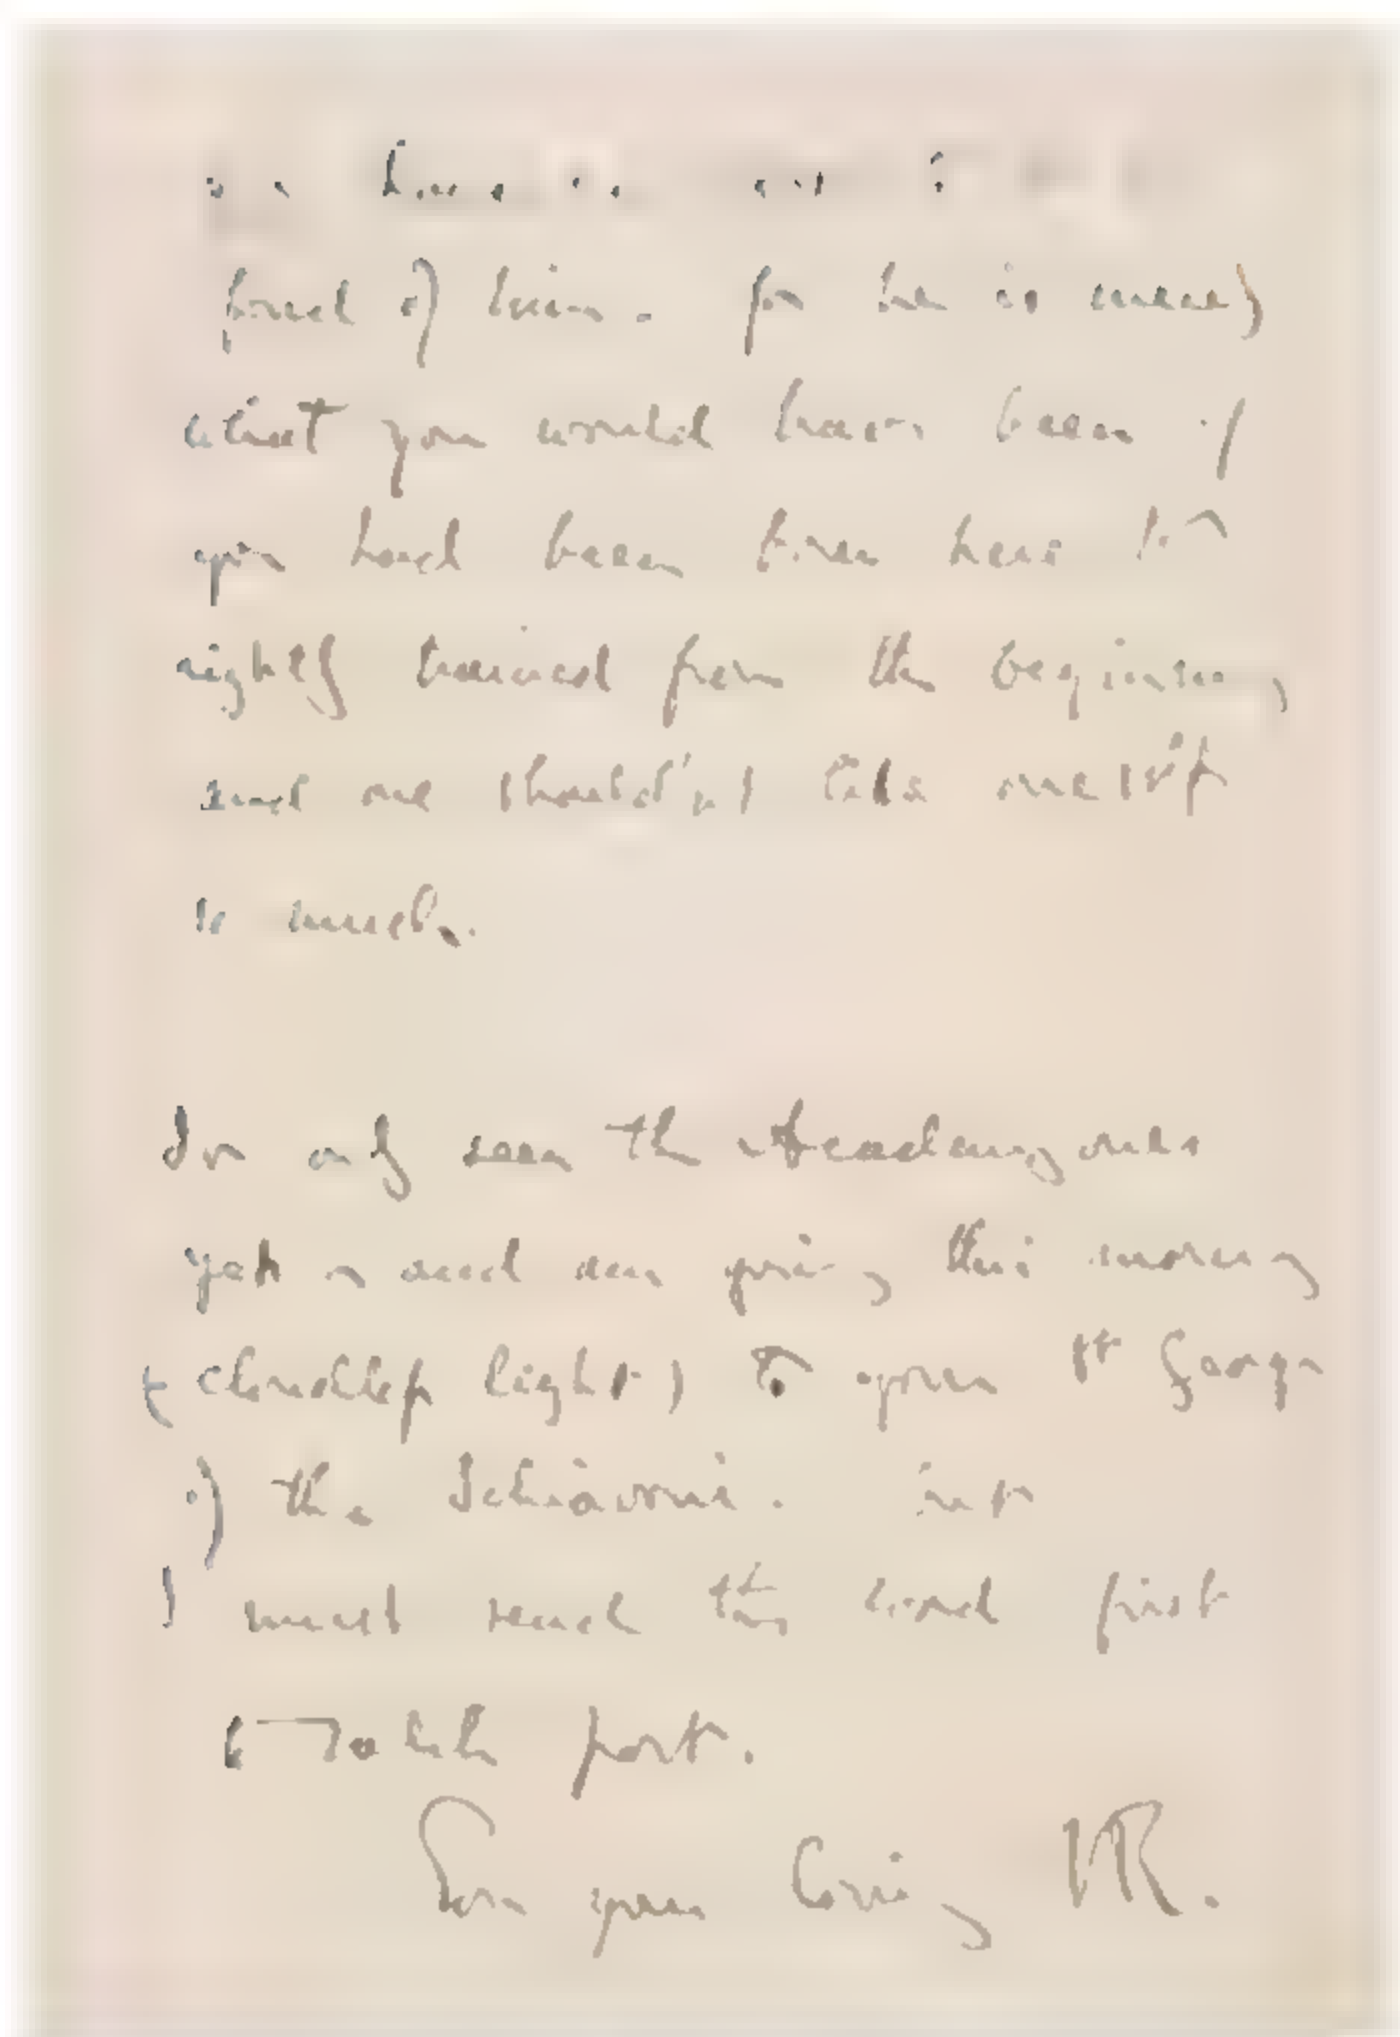 fond of him. for he is
what you would have been if
you had been born here &
rightly trained from the beginning
and one shouldn't like oneself
so much.
I've only seen the Academy ones
yet and am going this morning
(cloudless light) to your St George
of the Schiavoni. but
I must send this word first
to catch post.
Ever your loving JR.